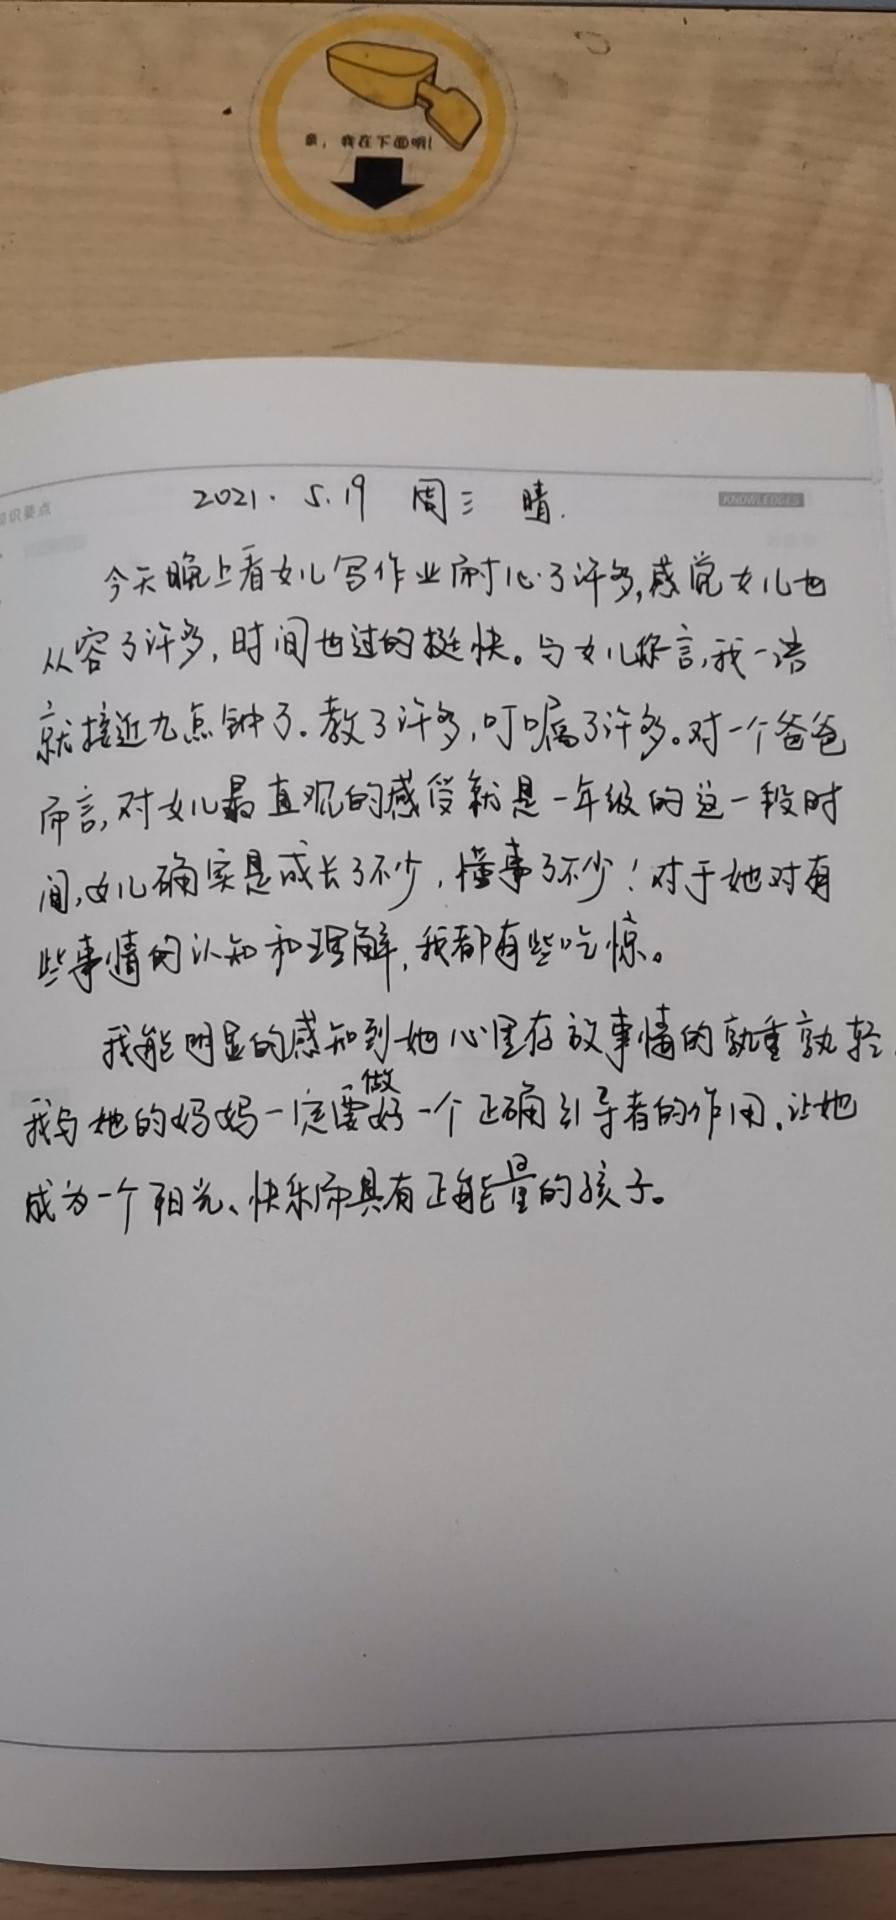 亲，我在下面哦！
知识要点
KNOWLEDGES
2021. 5.19 周三 晴.
今天晚上看女儿写作业耐心了许多,感觉女儿也
从容了许多,时间也过的挺快。与女儿你言,我一语
就接近九点钟了。教了许多,叮嘱了许多。对一个爸爸
而言,对女儿最直观的感受就是一年级的这一段时
间,女儿确实是成长了不少,懂事了不少!对于她对有
些事情的认知和理解,我都有些吃惊。
我能明显的感知到她心里存放事情的孰重孰轻,
我与她的妈妈一定要做好一个正确引导者的作用,让她
成为一个阳光、快乐而具有正能量的孩子。